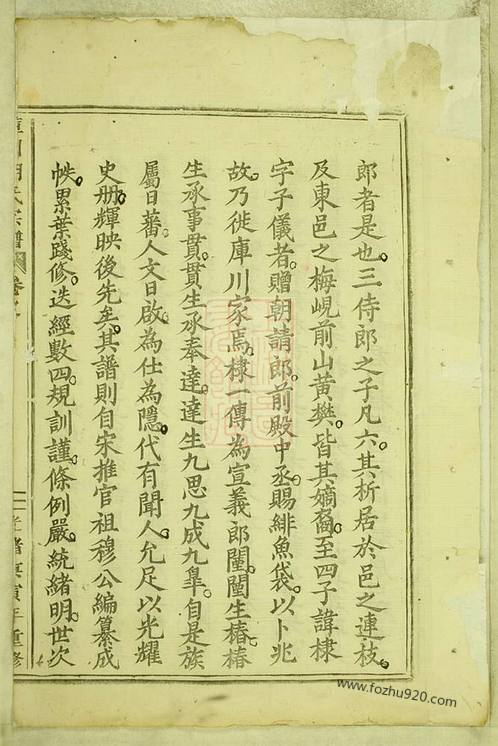 郎者是也三侍郎之子凡六其析居於邑之連枝
及東邑之梅峴前山黃樊皆其嫡裔至四子諱棣
字子儀者贈朝請郎前殿中丞賜緋魚袋以卜兆
故乃徙庫川家焉棣一傳為宣義郎闉闉生椿椿
生承事貫貫生承奉達達生九思九成九臯自是族
屬日蕃人文日啟為仕為隱代有聞人允足以光耀
史册輝映後先矣其譜則自宋推官祖穆公編纂成
帙累葉踐修迭經數四規訓謹條例嚴統緒明世次
庫川胡氏宗譜
年重修
www.fozhu920.com